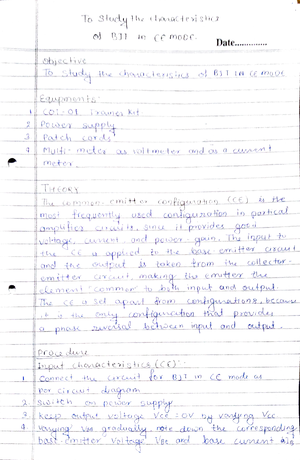 To Study the characteristics
of BJT in CE mode.
Date.............
Objective
To study the characteristics of BJT in CE mode
Equipments
1 COT-01 Trainer kit
2 Power supply
3 Patch cords
4 Multi-meter as voltmeter and as a current
meter
Theory
The common emitter configuration (CE) is the
most frequently used configuration in partical
amplifier circuits, since it provides good
voltage, current and power gain. The input to
the CE is applied to the base-emitter circuit
and the output is taken from the collector-
emitter circuit, making the emitter the
element "common" to both input and output
The CE is set apart from configurations, because
it is the only configuration that provides
a phase reversal between input and output.
Procedure
Input characteristics (CE):
1 Connect the circuit for BJT in CE mode as
per circuit diagram
2 Switch on power supply
3 Keep output voltage Vce = 0V by varying Vcc
4 Varying Vbb gradually, note down the corresponding
base-emitter voltage Vbe and base current